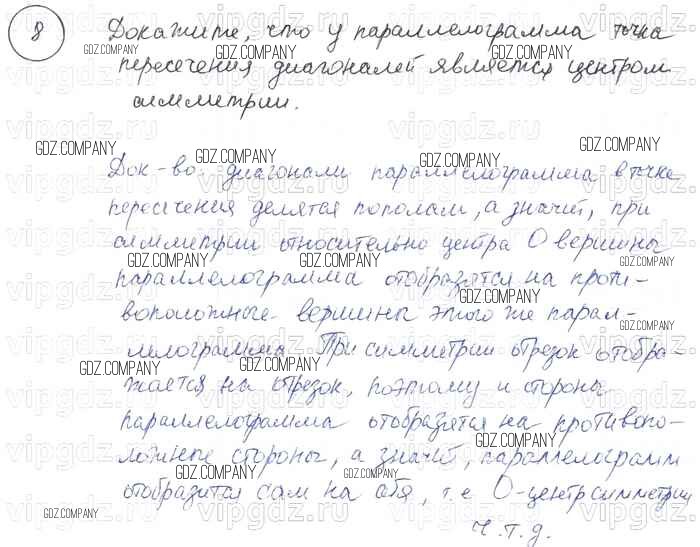 8 Докажите, что у параллелограмма точка
пересечения диагоналей является центром
симметрии.
Док-во. диагонали параллелограмма в точке
пересечения делятся пополам, а значит, при
симметрии относительно центра О вершины
параллелограмма отобразятся на проти-
воположные вершины этого же парал-
лелограмма. При симметрии отрезок отобра-
жается на отрезок, поэтому и стороны
параллелограмма отобразятся на противопо-
ложные стороны, а значит, параллелограмм
отобразится сам на себя, т.е. О-центр симметрии
ч.т.д.
GDZ.COMPANY
vipgdz.ru